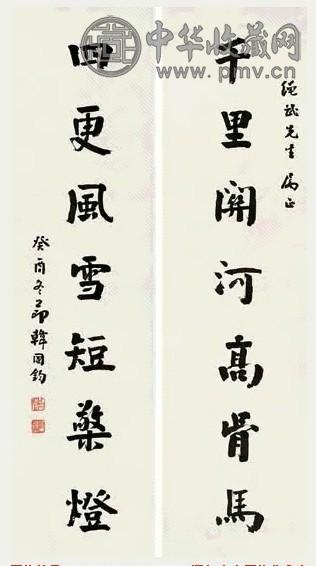 中华收藏网
www.pmv.cn
繩武先生属正
千里關河高骨馬
四更風雪短檠燈
癸酉冬節韓国鈞